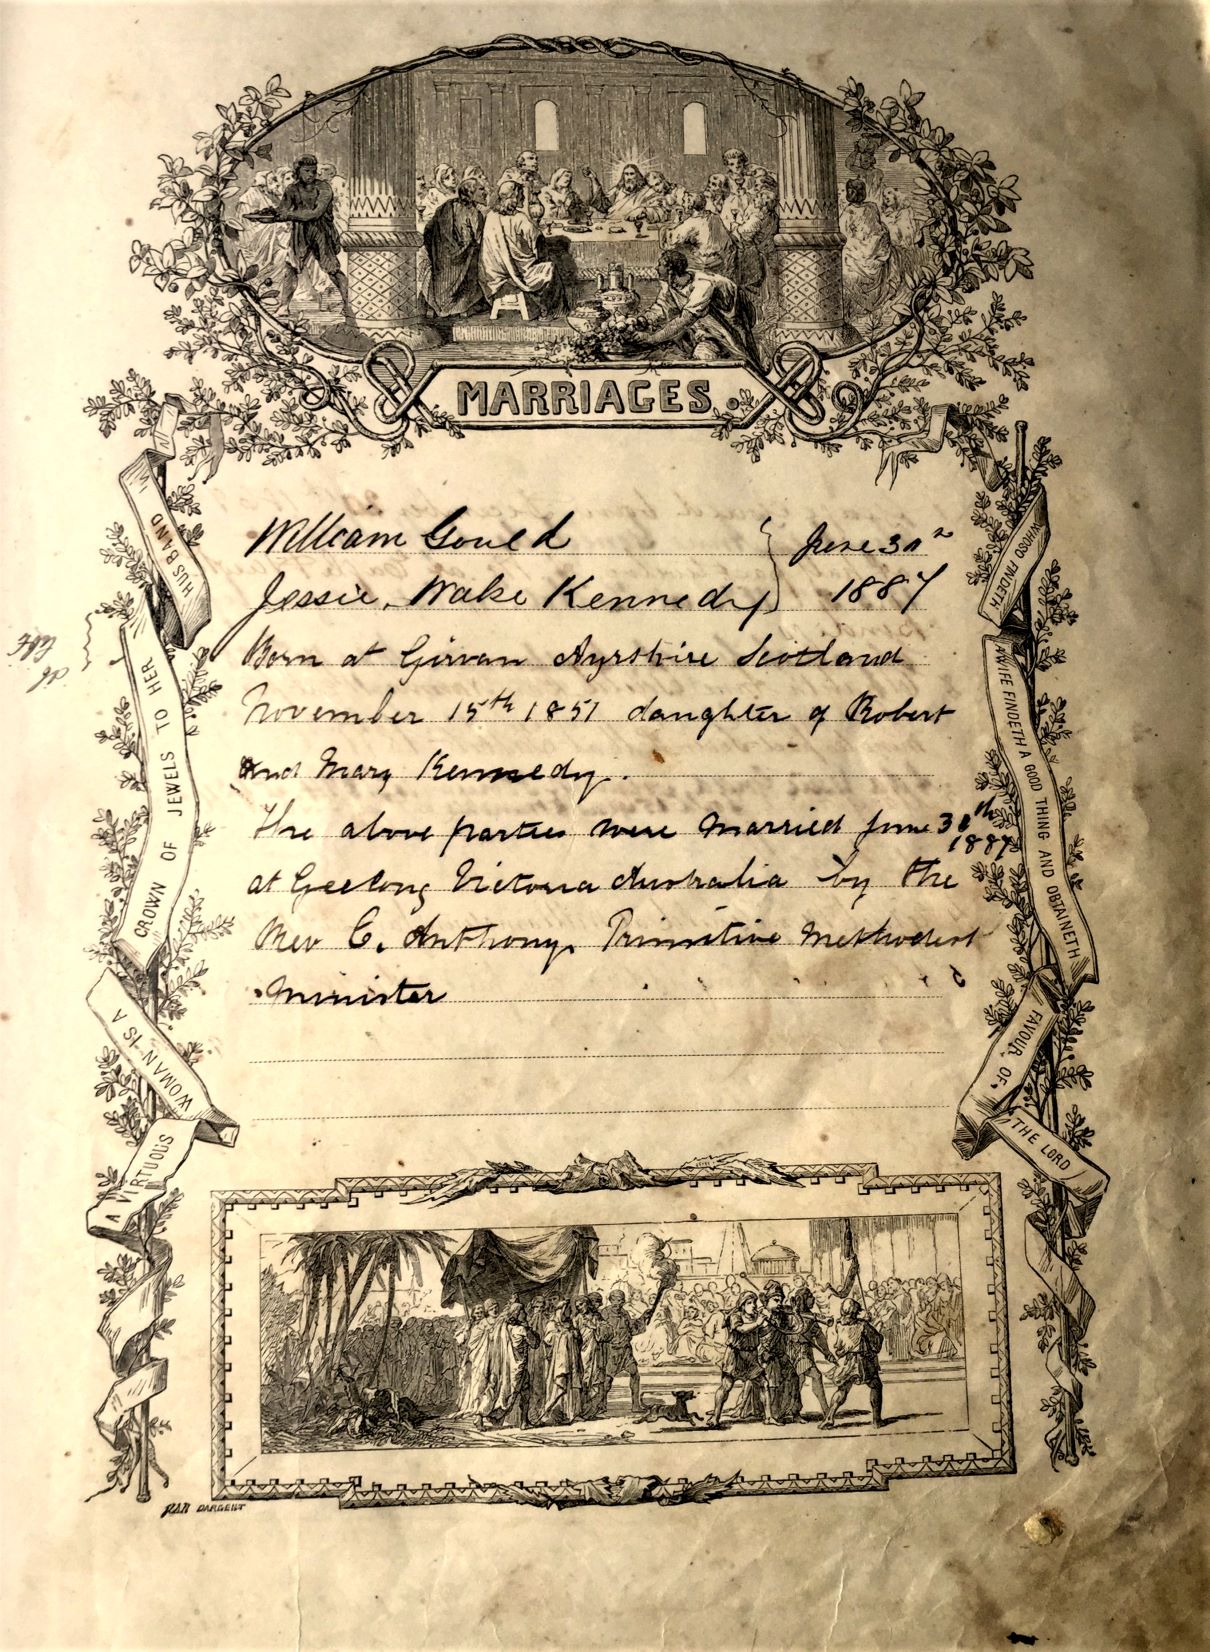 MARRIAGES.
William Gould
June 30
Jessie Wake Kennedy
1887
Born at Girvan Ayrshire Scotland
November 15th 1857 daughter of Robert
and Mary Kennedy.
The above parties were Married June 30th
1887
at Geelong Victoria Australia by the
Rev C. Anthony. Primitive Methodist
Minister
A VIRTUOUS
WOMAN IS A
CROWN OF JEWELS TO HER
HUSBAND
WHOSO FINDETH
A WIFE FINDETH A GOOD THING AND OBTAINETH
FAVOUR OF
THE LORD
DARGENT